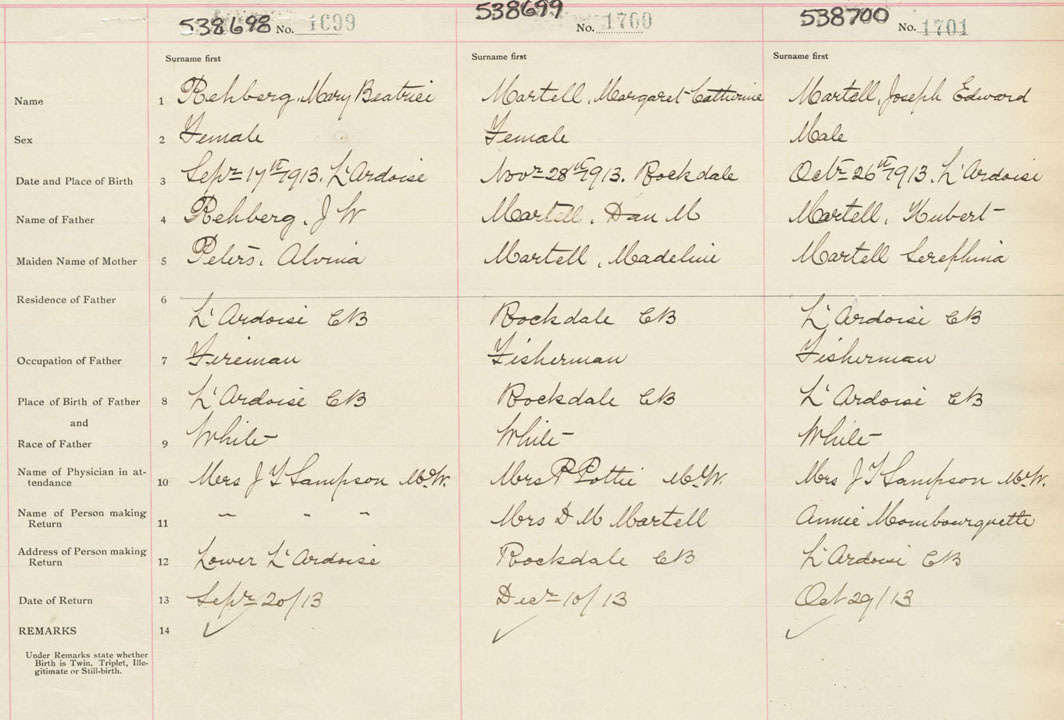 538698 No. 1699 538699 No. 1700 538700 No. 1701
Surname first Surname first Surname first
Name 1 Rehberg, Mary Beatrice Martell, Margaret Catherine Martell, Joseph Edward
Sex 2 Female Female Male
Date and Place of Birth 3 Sepr 17th 1913. L'Ardoise Novr 28th 1913. Rockdale Octr 26th 1913. L'Ardoise
Name of Father 4 Rehberg, J W Martell, Dan M Martell, Hubert
Maiden Name of Mother 5 Peters, Alvina Martell, Madeline Martell Seraphina
Residence of Father 6
L'Ardoise CB Rockdale CB L'Ardoise CB
Occupation of Father 7 Fireman Fisherman Fisherman
Place of Birth of Father 8 L'Ardoise CB Rockdale CB L'Ardoise CB
and
Race of Father 9 White White White
Name of Physician in at-
tendance 10 Mrs J T Sampson Md.W. Mrs P Pottie Md.W. Mrs J T Sampson Md.W.
Name of Person making
Return 11 " " " Mrs D M Martell Annie Mombourquette
Address of Person making
Return 12 Lower L'Ardoise Rockdale CB L'Ardoise CB
Date of Return 13 Sepr 20/13 Decr 10/13 Oct 29/13
REMARKS 14 ✓ ✓ ✓
Under Remarks state whether
Birth is Twin, Triplet, Ille-
gitimate or Still-birth.